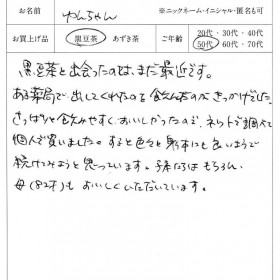 お名前 ゆんちゃん ※ニックネーム・イニシャル・匿名も可
お買上げ品 黒豆茶・あずき茶 ご年齢 20代・30代・40代
50代・60代・70代
黒豆茶と出会ったのは、まだ最近です。
ある薬局で、出してくれたのを飲んだのがきっかけでした。
さっぱりと飲みやすく、おいしかったので、ネットで調べて
個人で買いました。すると色々と身体にも良いようで
続けてみようと思っています。子供たちはもちろん、
母(82才)も おいしくいただいています。